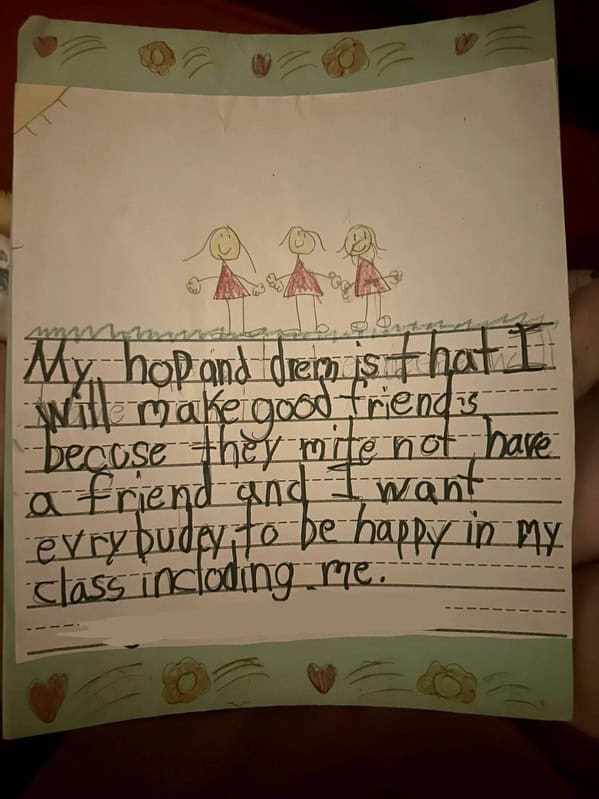 My hop and drem is that I
will make good friends
becose they mite not have
a friend and I want
evrybudey to be happy in my
class incloding me.